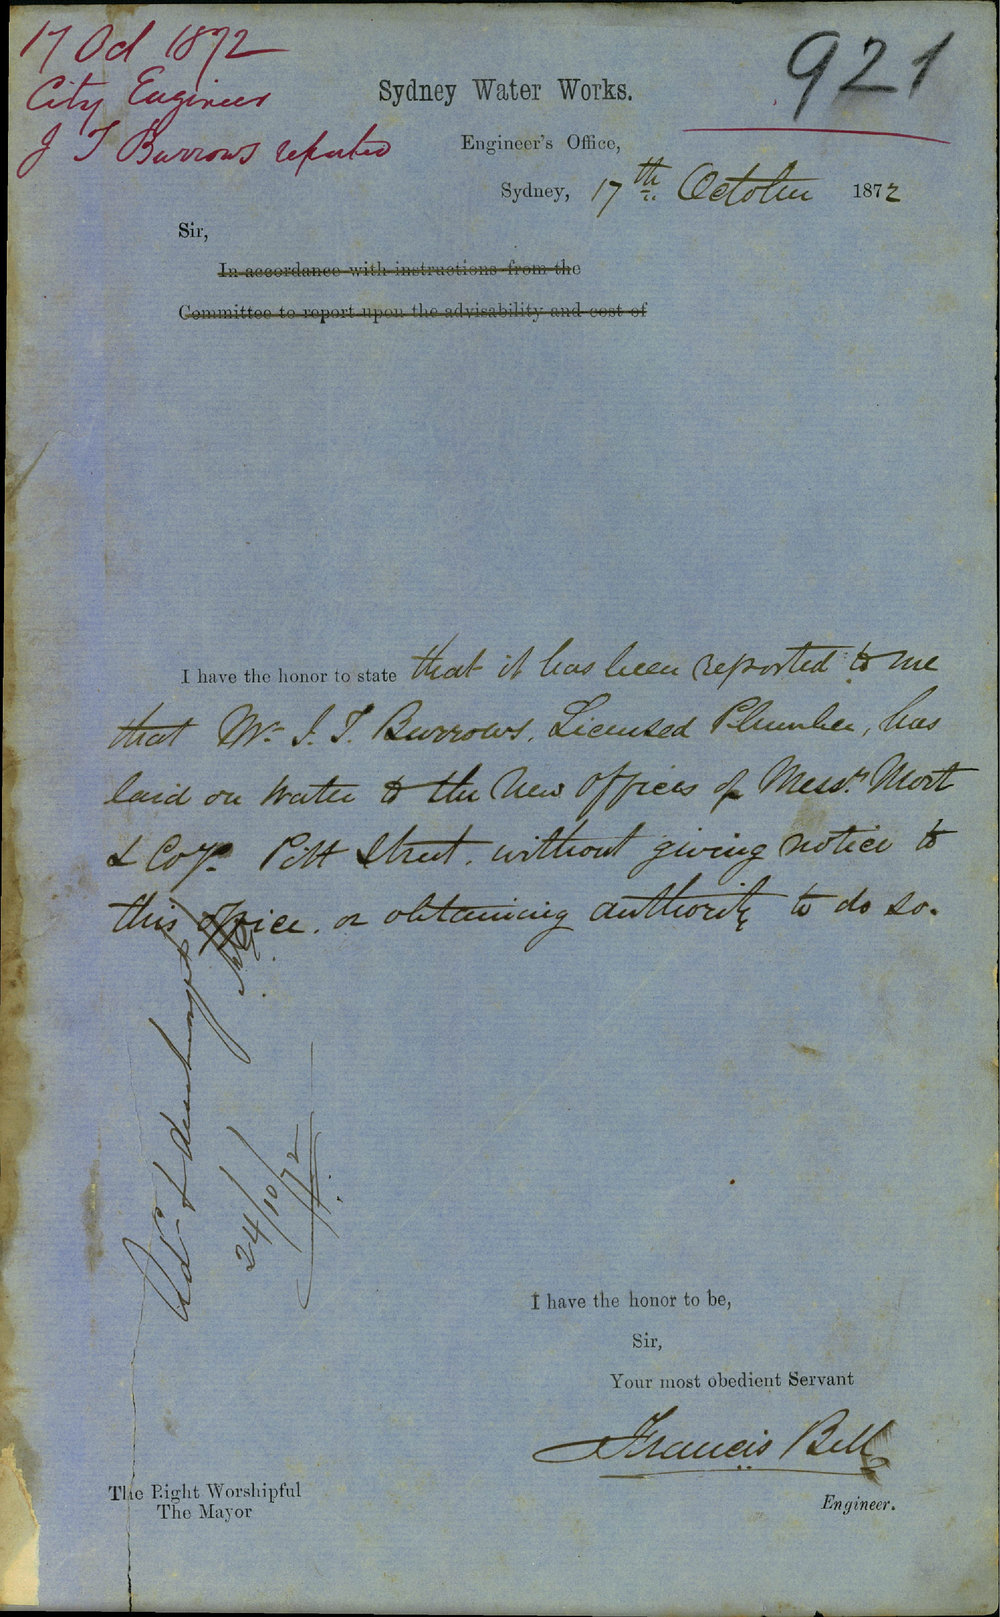 17 Oct 1872
City Engineer
J T Burrows reported
921
Sydney Water Works.
Engineer's Office,
Sydney, 17th October 1872
Sir,
In accordance with instructions from the
Committee to report upon the advisability and cost of
I have the honor to state that it has been reported to me
that Mr. J. T. Burrows, Licensed Plumber, has
laid on Water to the New Offices of Messrs. Mort
& Coy. Pitt Street. without giving notice to
this office. or obtaining authority to do so.
24/10/72
I have the honor to be,
Sir,
Your most obedient Servant
Francis Bell
Engineer.
The Right Worshipful
The Mayor